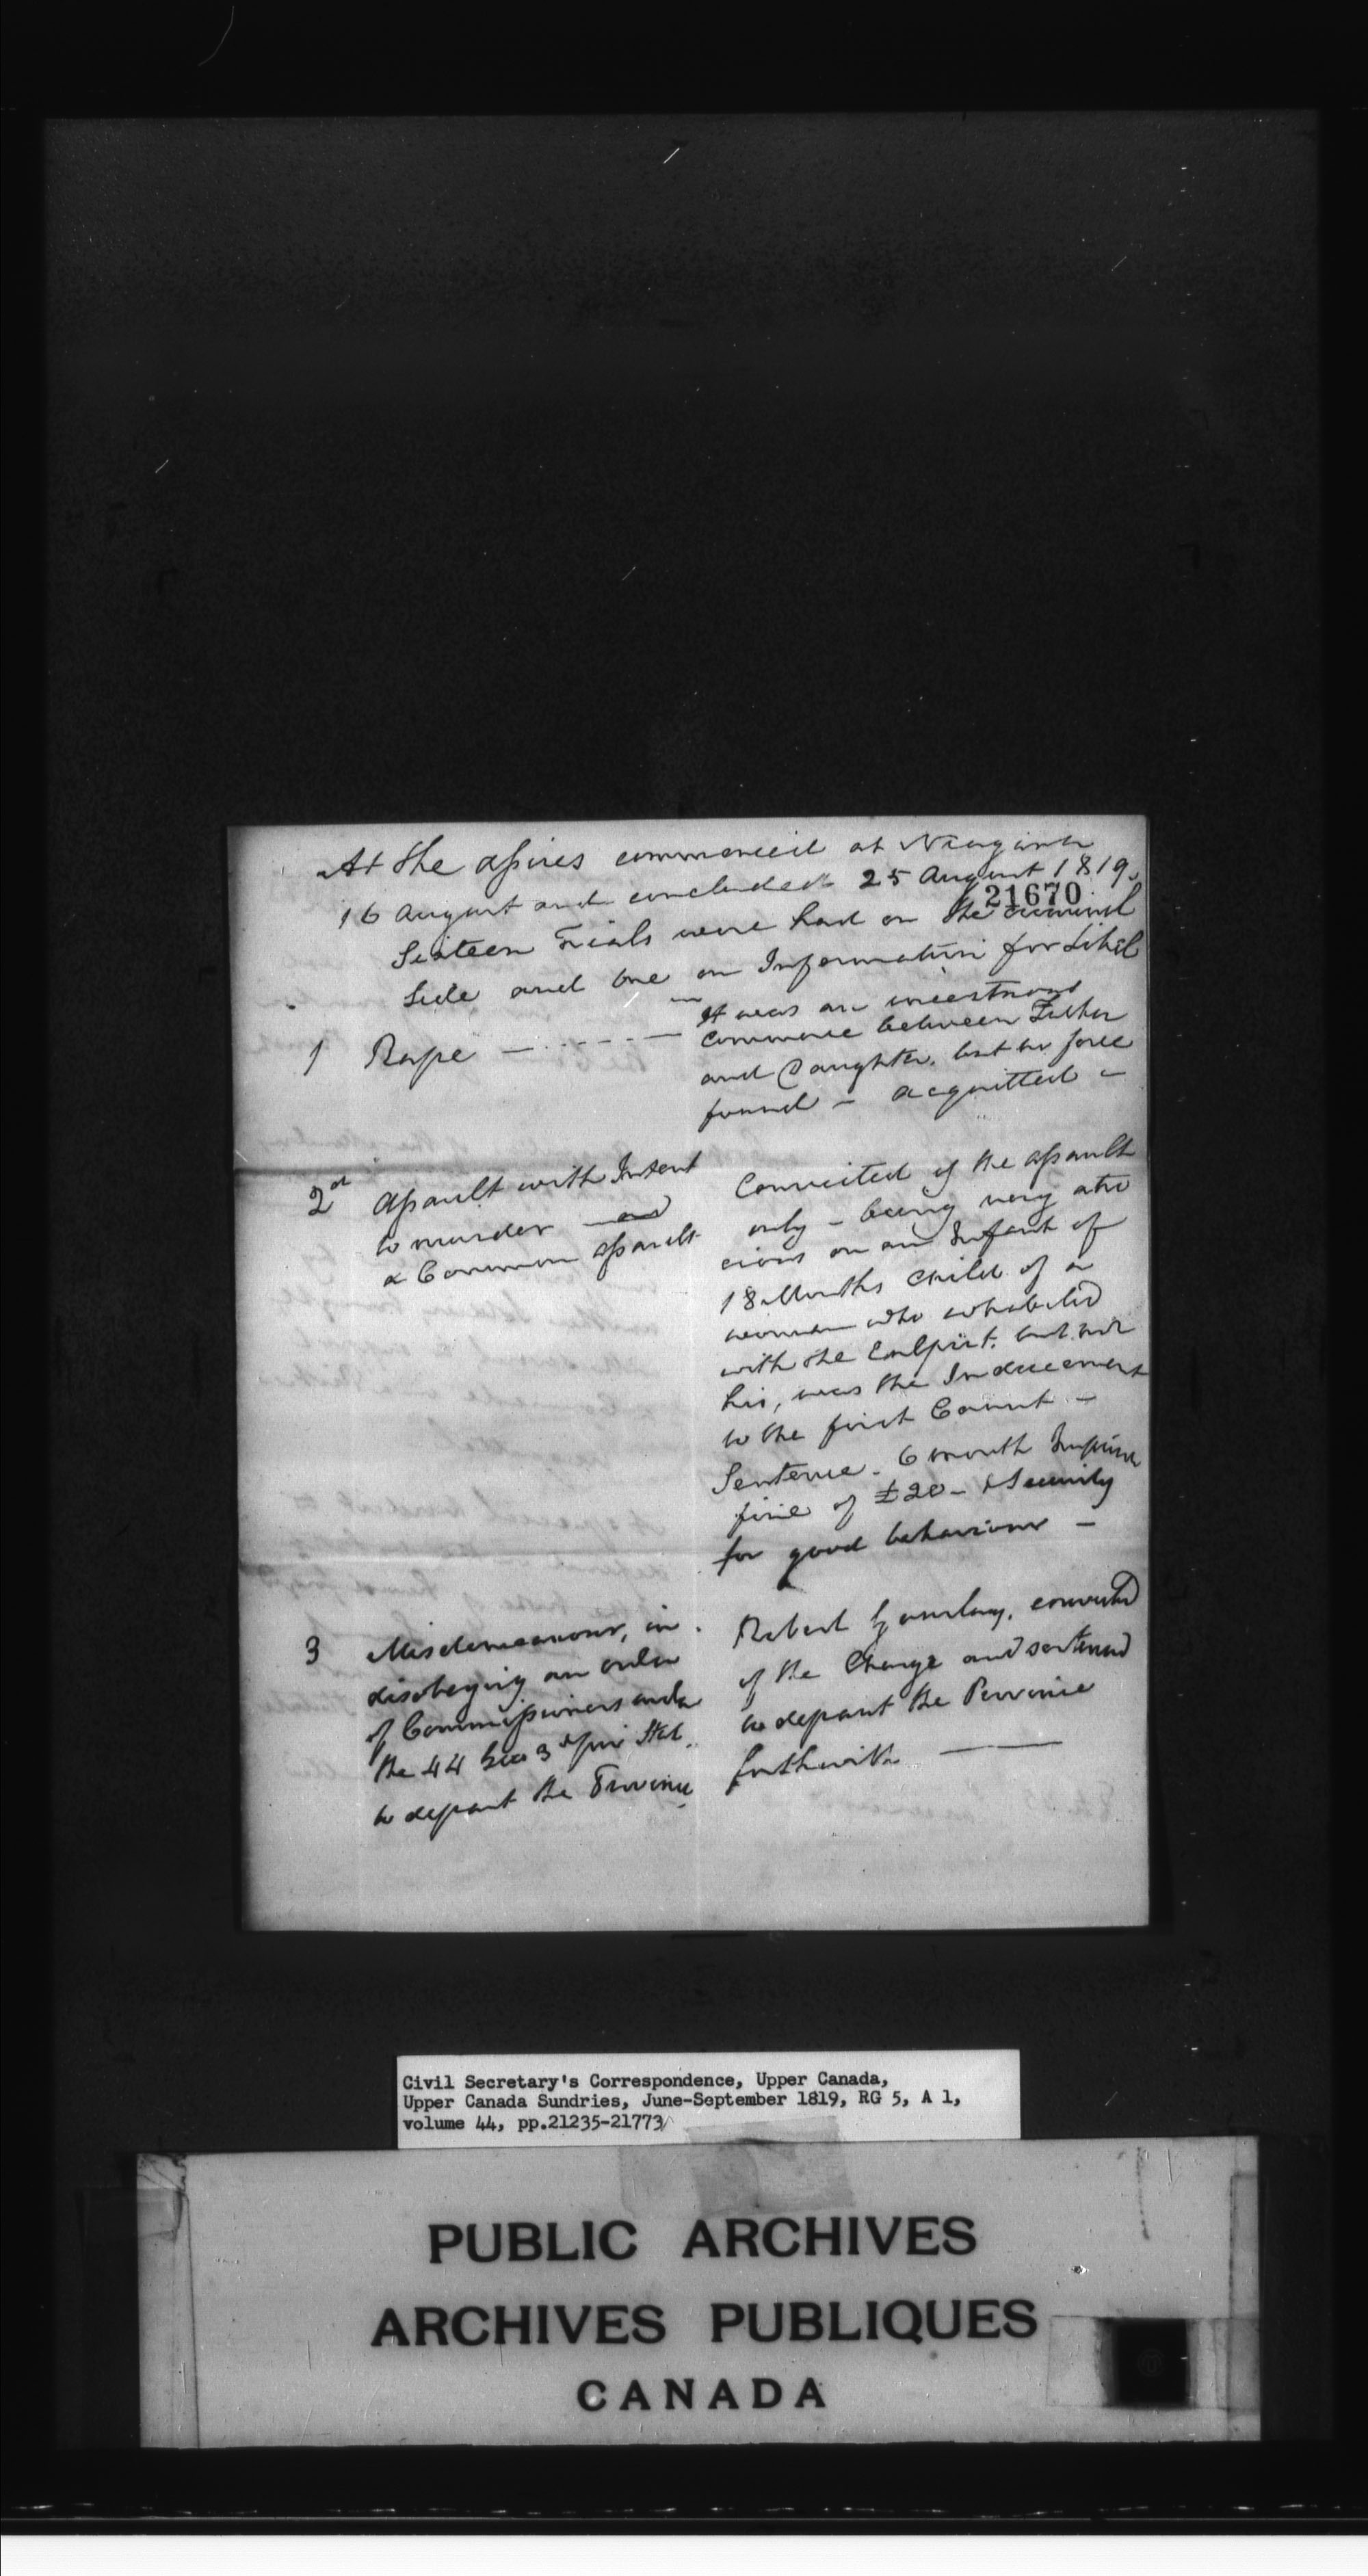 At the assizes commenced at Niagara
16 August and concluded 25 August 1819.
21670
Sixteen Trials were had on the criminal
Side and one on Information for Libel
1 Rape — - - - - —
It was an incestuous
commerce between Father
and Daughter. but no force
found – acquitted –
2d assault with Intent
to murder and
a Common assault
Convicted of the assault
only – being very atro
cious on an Infant of
18 Months Child of a
woman who cohabited
with the Culprit. but not
his, was the Inducement
to the first Count –
Sentence. 6 month Imprisn
fine of £20 – & Security
for good behaviour –
3 Misdemeanour, in
disobeying an order
of Commissioners under
the 44 Geo 3d Stat.
to depart the Province
Robert Gourlay. convicted
of the Charge and sentenced
to depart the Province
forthwith —
Civil Secretary's Correspondence, Upper Canada,
Upper Canada Sundries, June-September 1819, RG 5, A 1,
volume 44, pp.21235-21773
PUBLIC ARCHIVES
ARCHIVES PUBLIQUES
CANADA